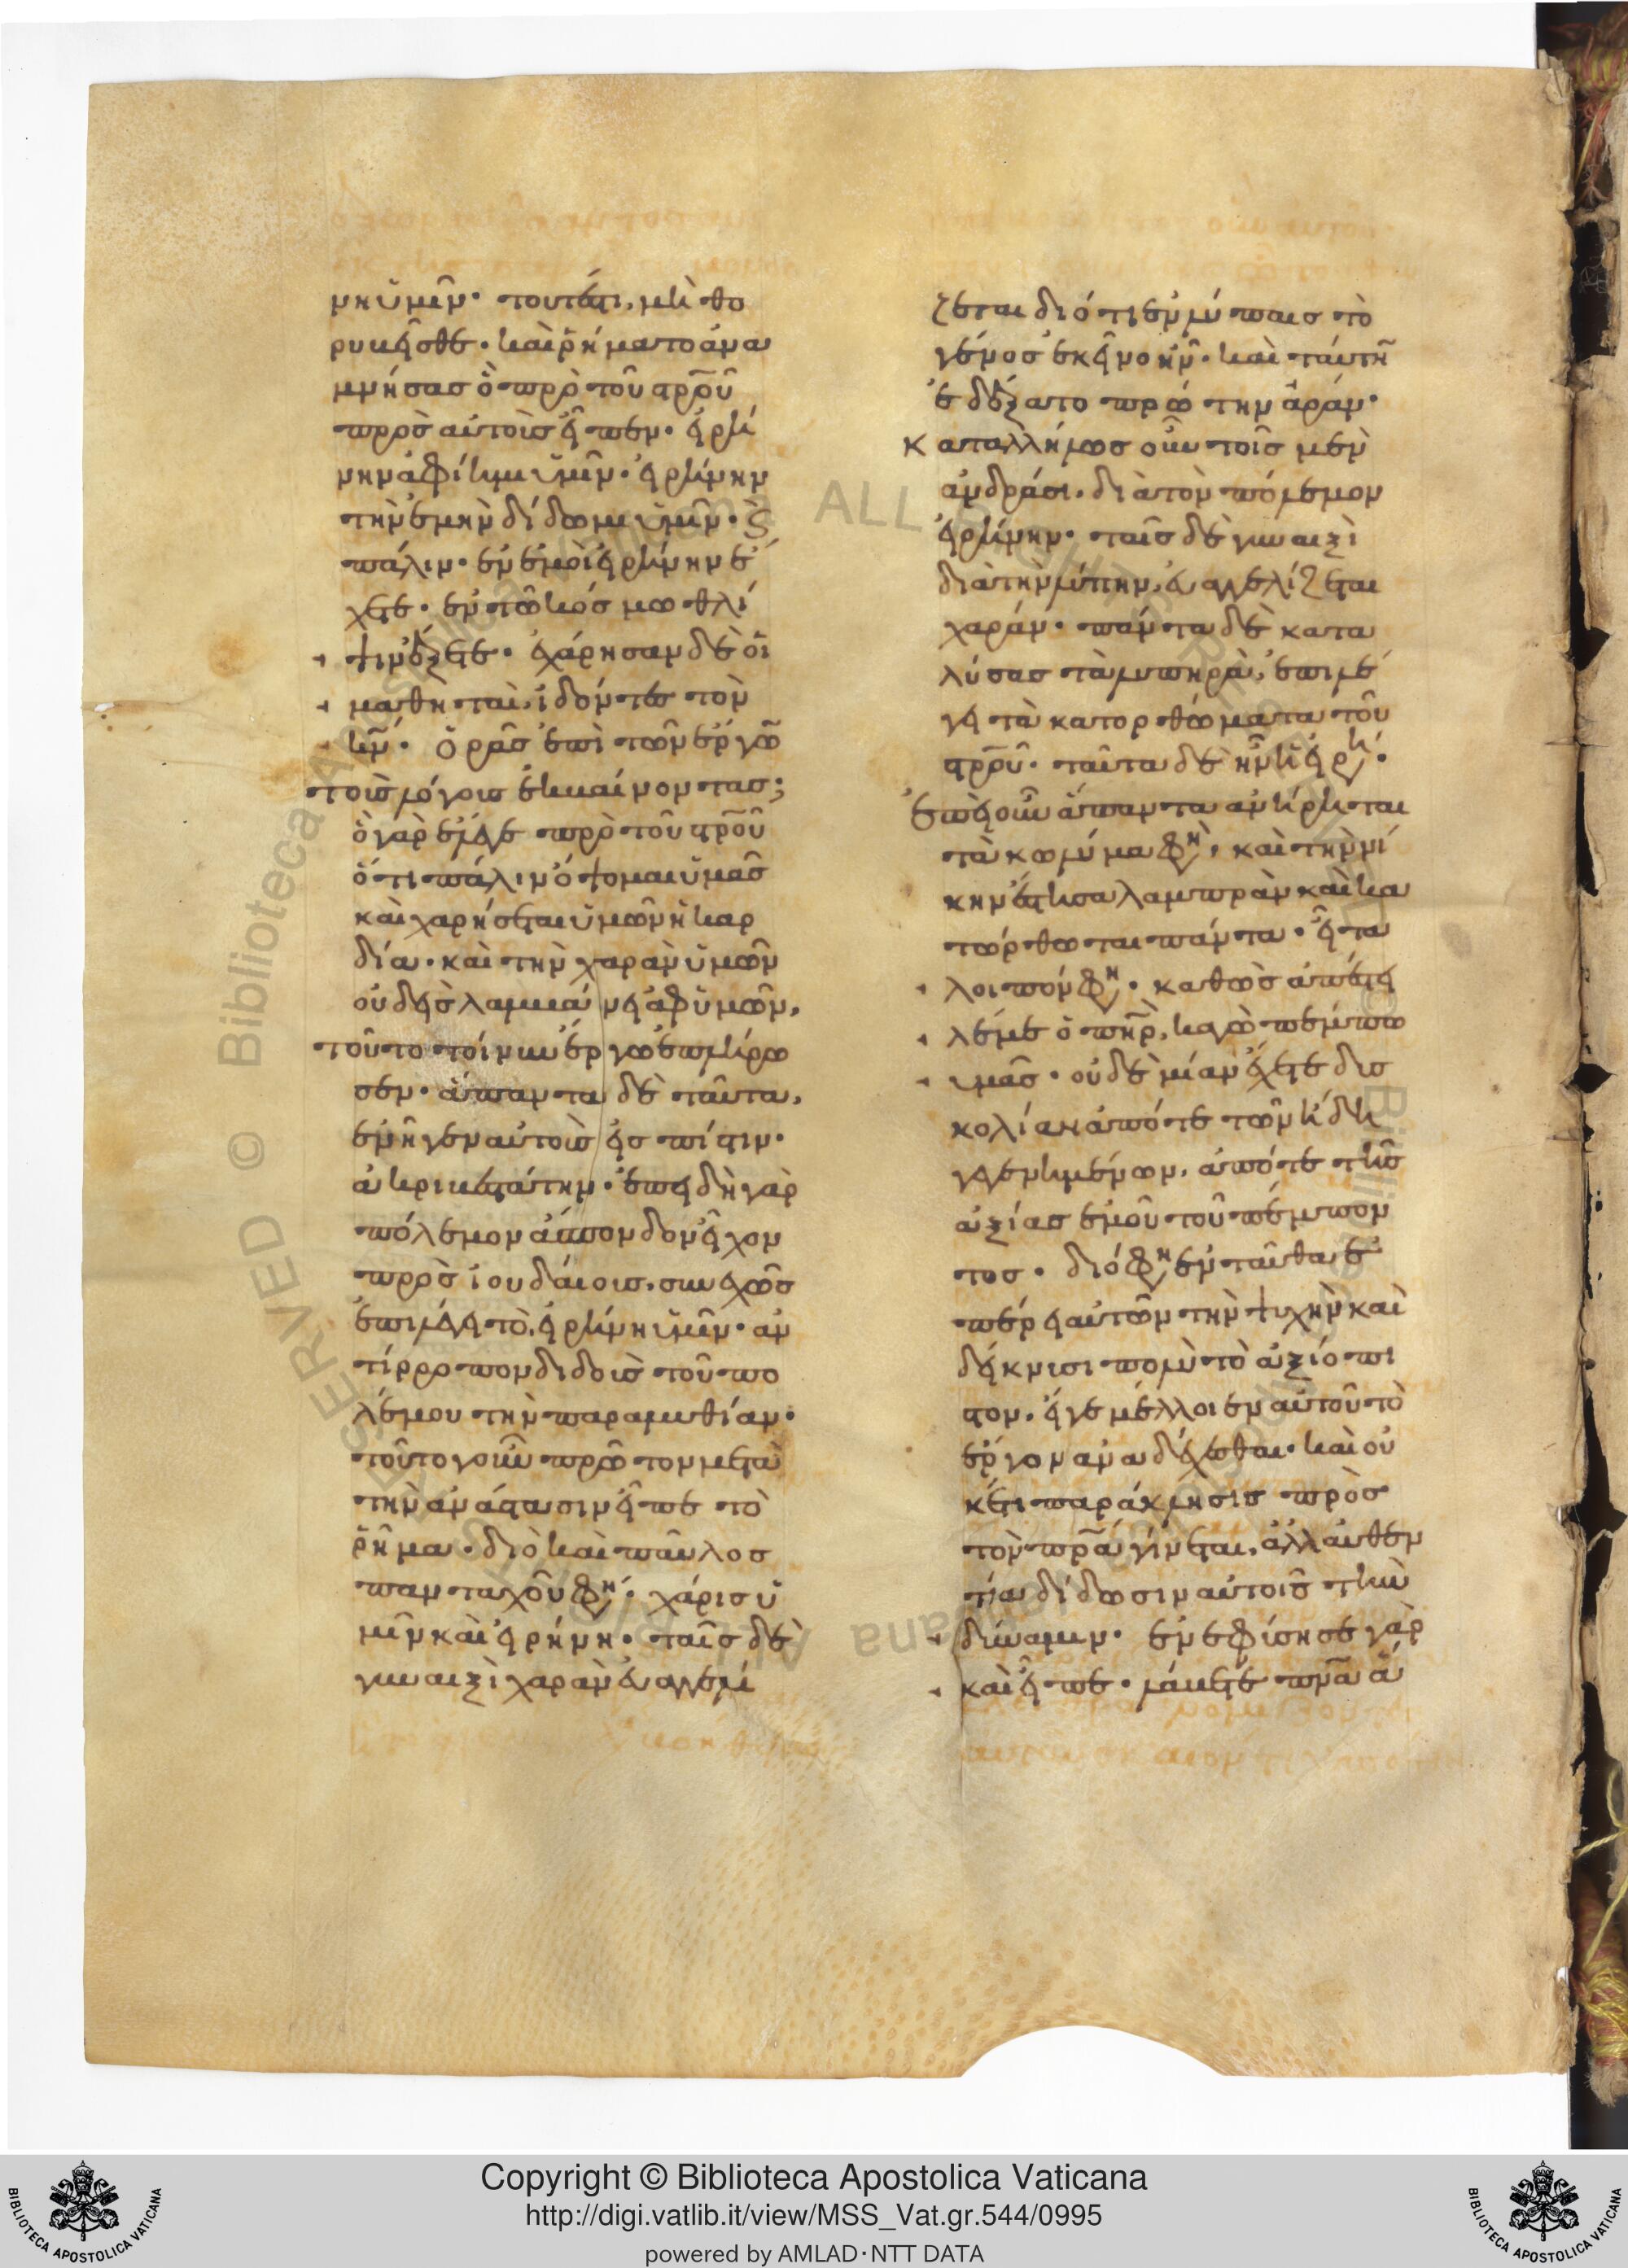 νη ὑμῖν· τουτέστι, μὴ θο
ρυβεῖσθε· καὶ ῥήματος ἀνα
μνήσας ὃ πρὸ τοῦ σρ̅οῦ
πρὸς αὐτοὺς εἶπεν· εἰρή
νην ἀφίημι ὑμῖν· εἰρήνην
τὴν ἐμὴν δίδωμι ὑμῖν· ϗ
πάλιν· ἐν ἐμοὶ εἰρήνην ἔ
χετε· ἐν τῶ κόσμω θλί
ψιν ἕξετε· ἐχάρησαν δὲ οἱ
μαθηταὶ, ἰδόντες τὸν
κ̅ν· ὁρᾶς ἐπὶ τῶν ἔργω̅
τοὺς λόγους ἐκβαίνοντας;
ὃ γὰρ ἔλεγε πρὸ τοῦ σρ̅οῦ
ὅτι πάλιν ὄψομαι ὑμᾶς
καὶ χαρήσεται ὑμῶν ἡ καρ
δία· καὶ τὴν χαρὰν ὑμῶν
οὐδεὶς λαμβάνει ἀφ ὑμῶν,
τοῦτο τοίνυν ἔργω ἐπλήρω
σεν· ἅπαντα δὲ ταῦτα,
ἐνῆγεν αὐτοὺς εἰς πίστιν·
ἀκριβεστάτην· ἐπειδὴ γὰρ
πόλεμον ἄσπονδον εἶχον
πρὸς ἰουδαίους, συνεχῶς
ἐπιλέγει τὸ, εἰρήνη ὑμῖν· ἀν
τίρροπον διδοὺς τοῦ πο
λέμου τὴν παραμυθίαν·
τοῦτο γοῦν πρῶτον μετὰ
τὴν ἀνάστασιν εἶπε τὸ
ῥῆμα· διὸ καὶ παῦλος
πανταχοῦ φη· χάρις ὑ
μῖν καὶ εἰρήνη· ταῖς δὲ
γυναιξὶ χαρὰν εὐαγγελί
ζεται διότι ἐν λύπαις τὸ
γένος ἐκεῖνο ἦν· καὶ ταύτη̅
ἐδέξατο πρώτην ἀράν·
καταλλήλως οὖν τοῖς μὲν
ἀνδράσι, διὰ τὸν πόλεμον
εἰρήνην· ταῖς δὲ γυναιξὶ
διὰ τὴν λύπην, εὐαγγελίζεται
χαράν· πάντα δὲ κατα
λύσας τὰ λυπηρὰ, ἐπιλέ
γει τὰ κατορθώματα τοῦ
σρ̅οῦ· ταῦτα δὲ ἦν ἡ εἰρη·
ἐπεὶ οὖν ἅπαντα ἀνήρηται
τὰ κωλύμα φη, καὶ τὴν νί
κην ἔστησα λαμπρὰν καὶ κα
τώρθωται πάντα· εἶτα
λοιπόν φη· καθὼς ἀπέστει
λέ με ὁ πη̅ρ, καγὼ πέμπω
ὑμᾶς· οὐδὲ μίαν ἔχετε δυσ
κολίαν ἀπό τε τῶν ἤδη
γεγενημένων, ἀπό τε τῆς
ἀξίας ἐμοῦ τοῦ πέμπον
τος· διό φη ἐνταῦθα ἐ
παίρει αὐτῶν τὴν ψυχὴν καὶ
δείκνυσι πολὺ τὸ ἀξιόπι
στον, εἴ γε μέλλοιεν αὐτοῦ τὸ
ἔργον ἀναδέχεσθαι· καὶ οὐ
κέτι παράκλησις πρὸς
τὸν πρ̅α γίνεται, ἀλλ αὐθεν
τία δίδωσιν αὐτοῖς τὴν
δύναμιν· ἐνεφύσησε γὰρ
καὶ εἶπε· λάβετε πν̅α ἅ